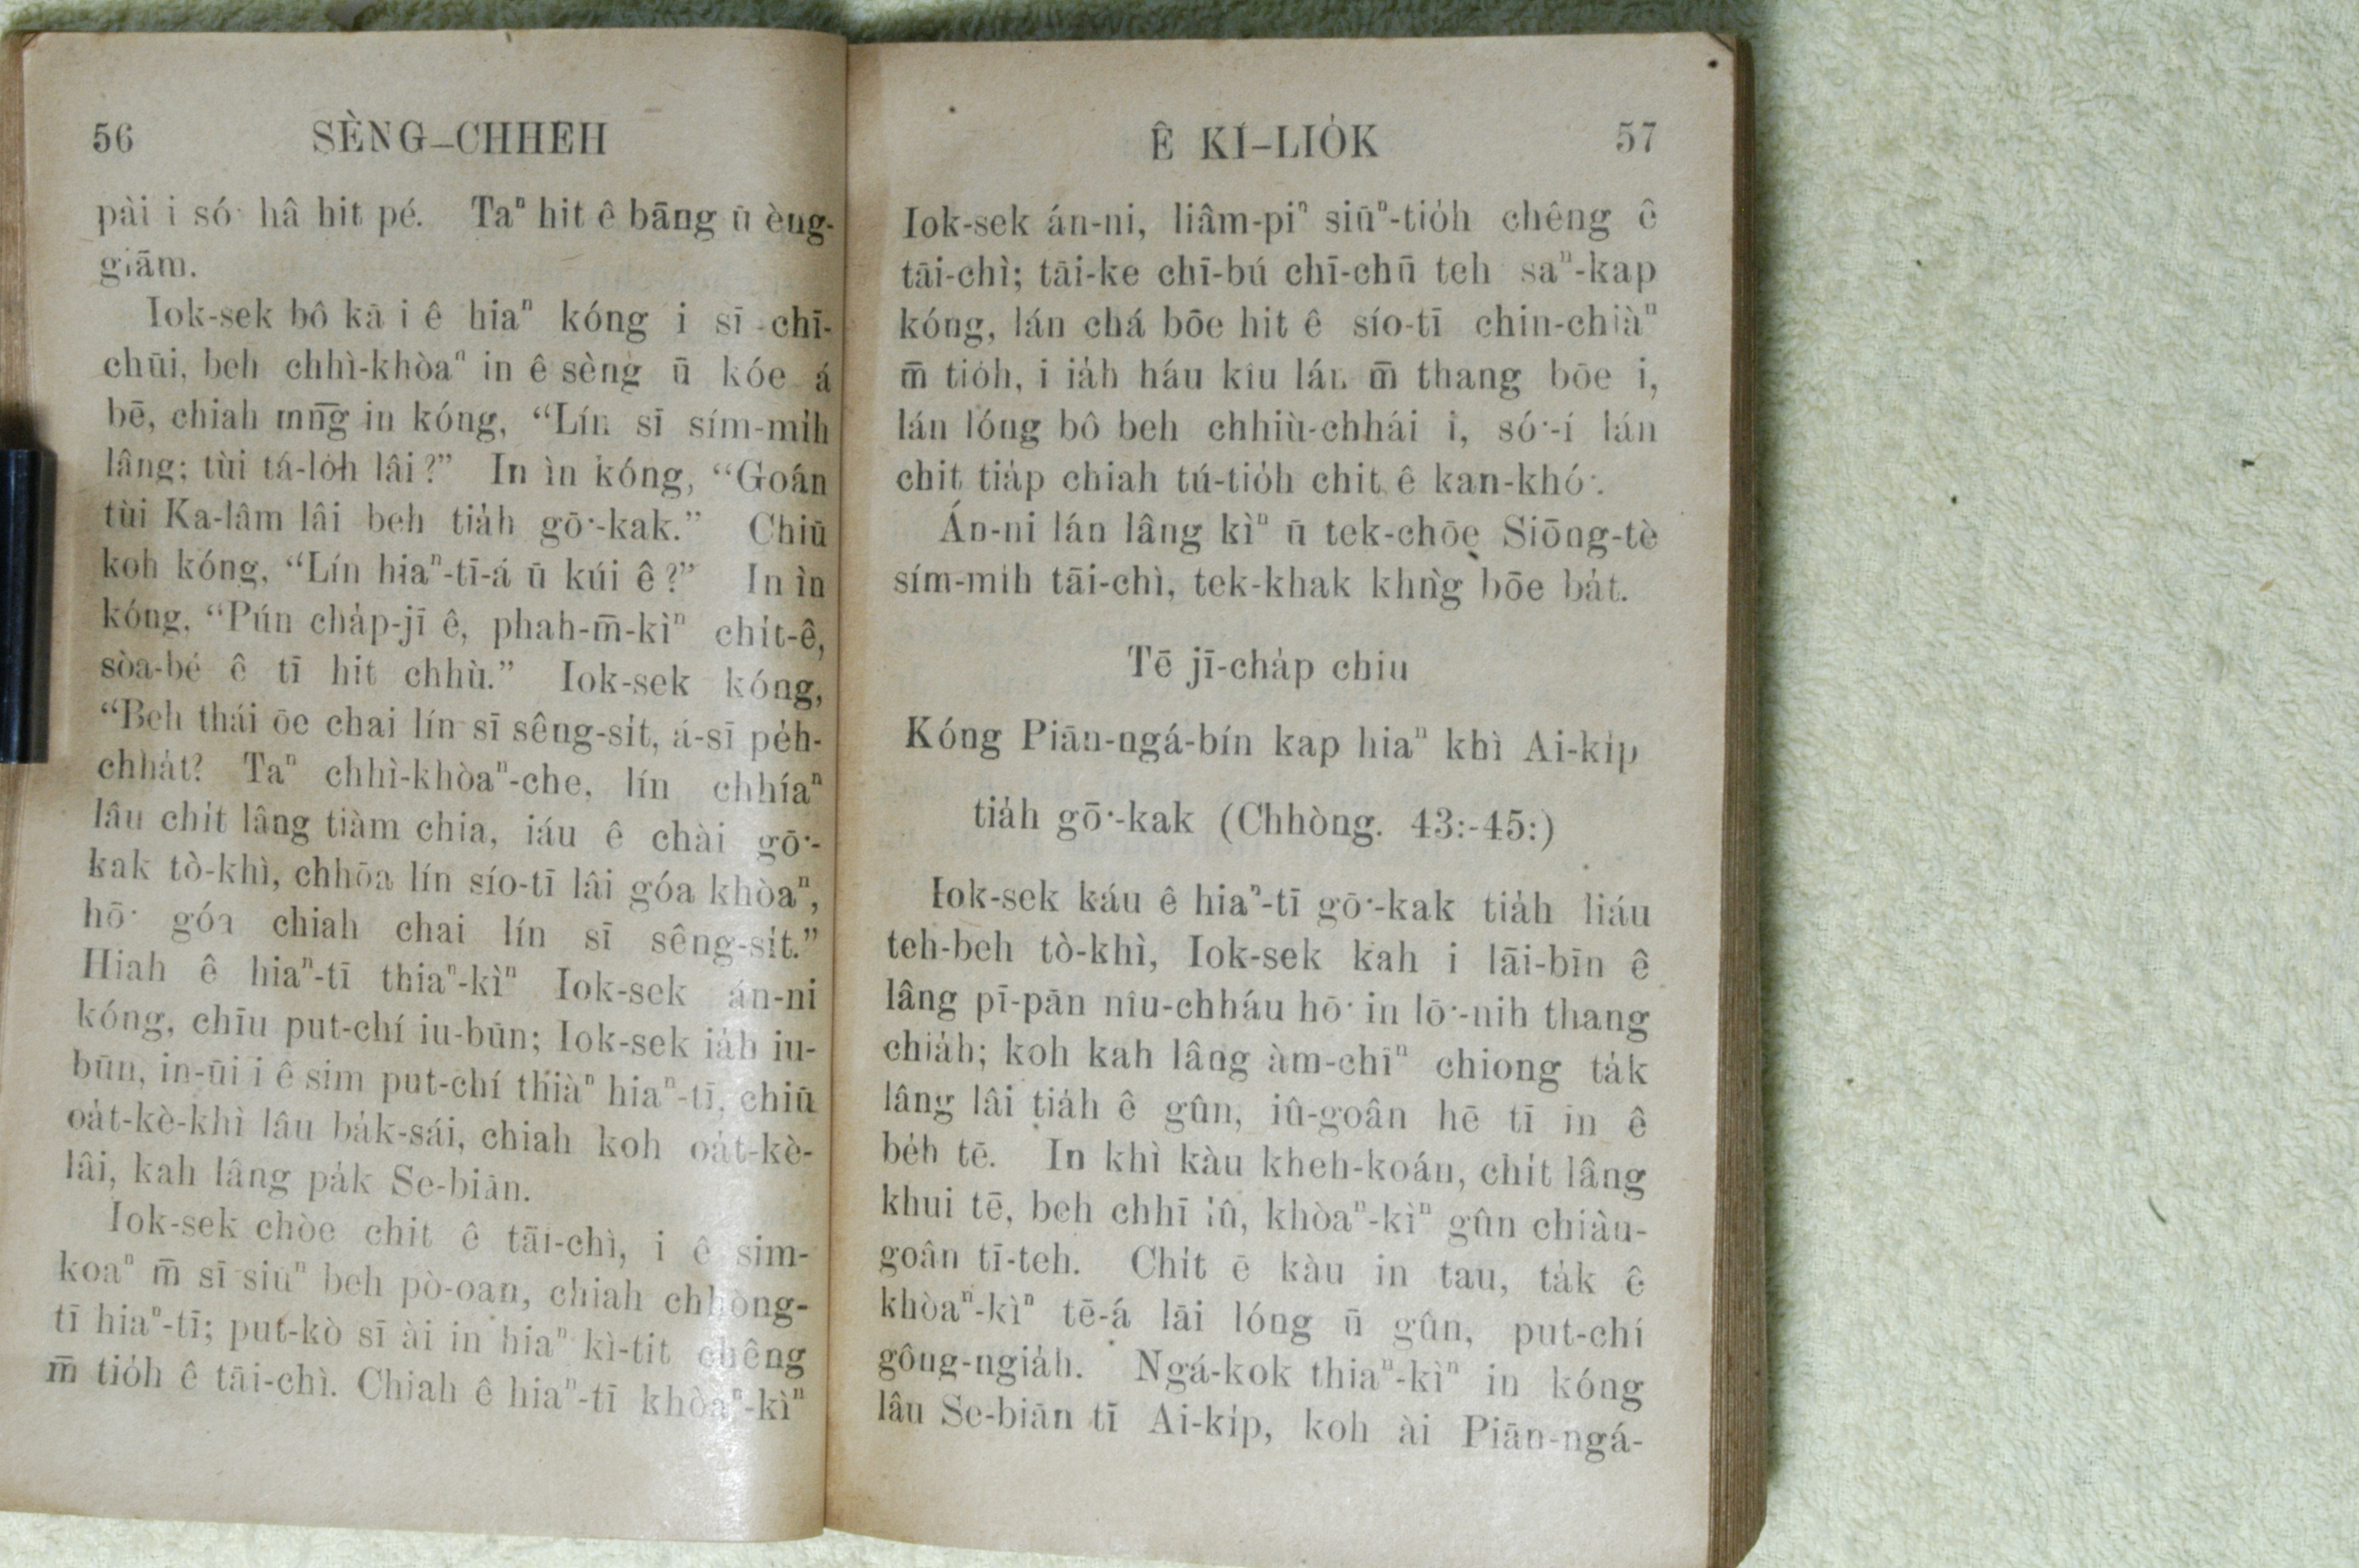 56 SÈNG-CHHEH
pài i só͘ hâ hit pé. Taⁿ hit ê bāng ū èng-
giām.
Iok-sek bô kā i ê hiaⁿ kóng i sī chī-
chūi, beh chhì-khòaⁿ in ê sèng ū kóe á
bē, chiah mn̄g in kóng, “Lín sī sím-mi̍h
lâng; tùi tá-lo̍h lâi?” In ìn kóng, “Goán
tùi Ka-lâm lâi beh tia̍h gō͘-kak.” Chiū
koh kóng, “Lín hiaⁿ-tī-á ū kúi ê?” In ìn
kóng, “Pún cha̍p-jī ê, phah-m̄-kìⁿ chi̍t-ê,
sòa-bé ê tī hit chhù.” Iok-sek kóng,
“Beh thái ōe chai lín sī sêng-si̍t, á-sī pe̍h-
chha̍t? Taⁿ chhì-khòaⁿ-che, lín chhíaⁿ
lâu chi̍t lâng tiàm chia, iáu ê chài gō͘-
kak tò-khì, chhōa lín sío-tī lâi góa khòaⁿ,
hō͘ góa chiah chai lín sī sêng-si̍t.”
Hiah ê hiaⁿ-tī thiaⁿ-kìⁿ Iok-sek án-ni
kóng, chīu put-chí iu-būn; Iok-sek ia̍h iu-
būn, in-ūi i ê sim put-chí thiàⁿ hiaⁿ-tī, chiū
oa̍t-kè-khì lâu ba̍k-sái, chiah koh oa̍t-kè-
lâi, kah lâng pa̍k Se-biān.
Iok-sek chòe chit ê tāi-chì, i ê sim-
koaⁿ m̄ sī siūⁿ beh pò-oan, chiah chhòng-
tī hiaⁿ-tī; put-kò sī ài in hiaⁿ kì-tit chêng
m̄ tio̍h ê tāi-chì. Chiah ê hiaⁿ-tī khòaⁿ-kìⁿ
Ê KÍ-LIO̍K 57
Iok-sek án-ni, liâm-piⁿ siūⁿ-tio̍h chêng ê
tāi-chì; tāi-ke chī-bú chī-chū teh saⁿ-kap
kóng, lán chá bōe hit ê sío-tī chin-chiàⁿ
m̄ tio̍h, i ia̍h háu kîu lán m̄ thang bōe i,
lán lóng bô beh chhiù-chhái i, só͘-í lán
chit tia̍p chiah tú-tio̍h chit ê kan-khó͘.
Án-ni lán lâng kìⁿ ū tek-chōe Siōng-tè
sím-mih tāi-chì, tek-khak khǹg bōe ba̍t.
Tē jī-cha̍p chiu
Kóng Piān-ngá-bín kap hiaⁿ khì Ai-ki̍p
tia̍h gō͘-kak (Chhòng. 43:-45:)
Iok-sek káu ê hiaⁿ-tī gō͘-kak tia̍h liáu
teh-beh tò-khì, Iok-sek kah i lāi-bīn ê
lâng pī-pān nîu-chháu hō͘ in lō͘-nih thang
chia̍h; koh kah lâng àm-chīⁿ chiong ta̍k
lâng lâi tia̍h ê gûn, iû-goân hē tī in ê
be̍h tē. In khì kàu kheh-koán, chi̍t lâng
khui tē, beh chhī lû, khòaⁿ-kìⁿ gûn chiàu-
goân tī-teh. Chi̍t ē kàu in tau, ta̍k ê
khòaⁿ-kìⁿ tē-á lāi lóng ū gûn, put-chí
gông-ngia̍h. Ngá-kok thiaⁿ-kìⁿ in kóng
lâu Se-biān tī Ai-ki̍p, koh ài Piān-ngá-